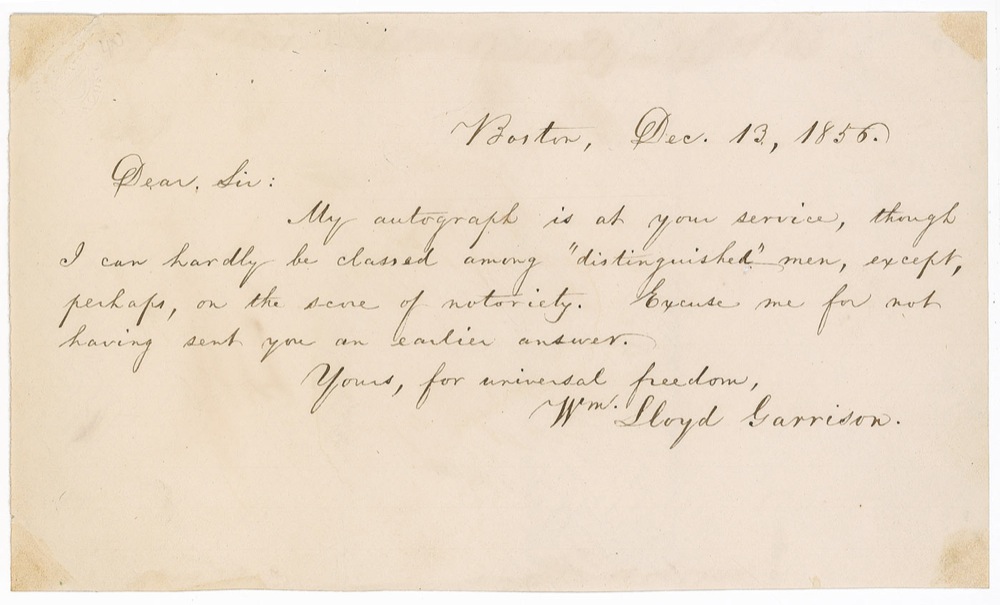 Boston, Dec. 13, 1856.
Dear Sir:
My autograph is at your service, though
I can hardly be classed among "distinguished" men, except,
perhaps, on the score of notoriety. Excuse me for not
having sent you an earlier answer.
Yours, for universal freedom,
Wm. Lloyd Garrison.